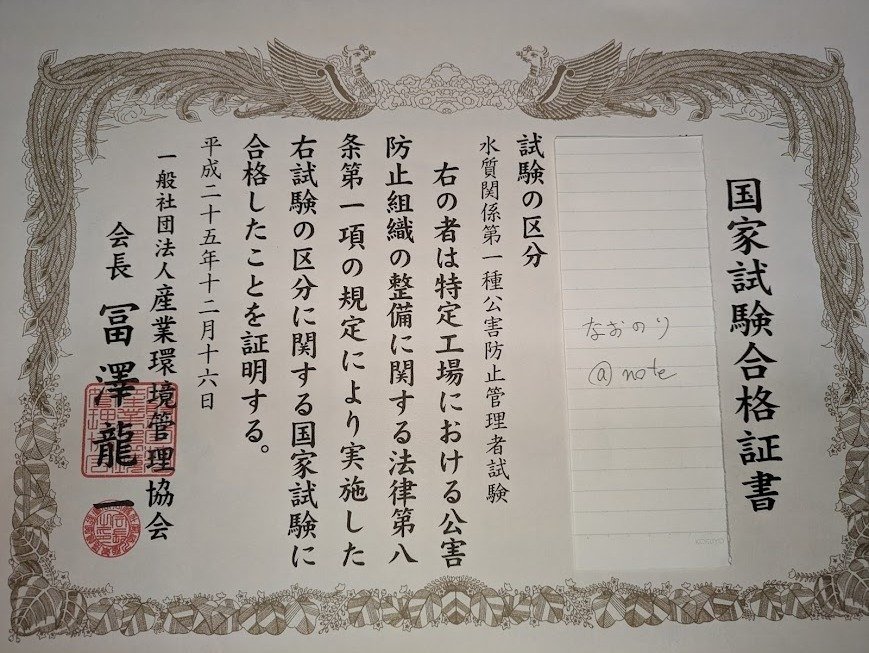 国家試験合格証書
なおのり
@note
試験の区分
水質関係第一種公害防止管理者試験
右の者は特定工場における公害
防止組織の整備に関する法律第八
条第一項の規定により実施した
右試験の区分に関する国家試験に
合格したことを証明する。
平成二十五年十二月十六日
一般社団法人産業環境管理協会
会長 冨澤龍一